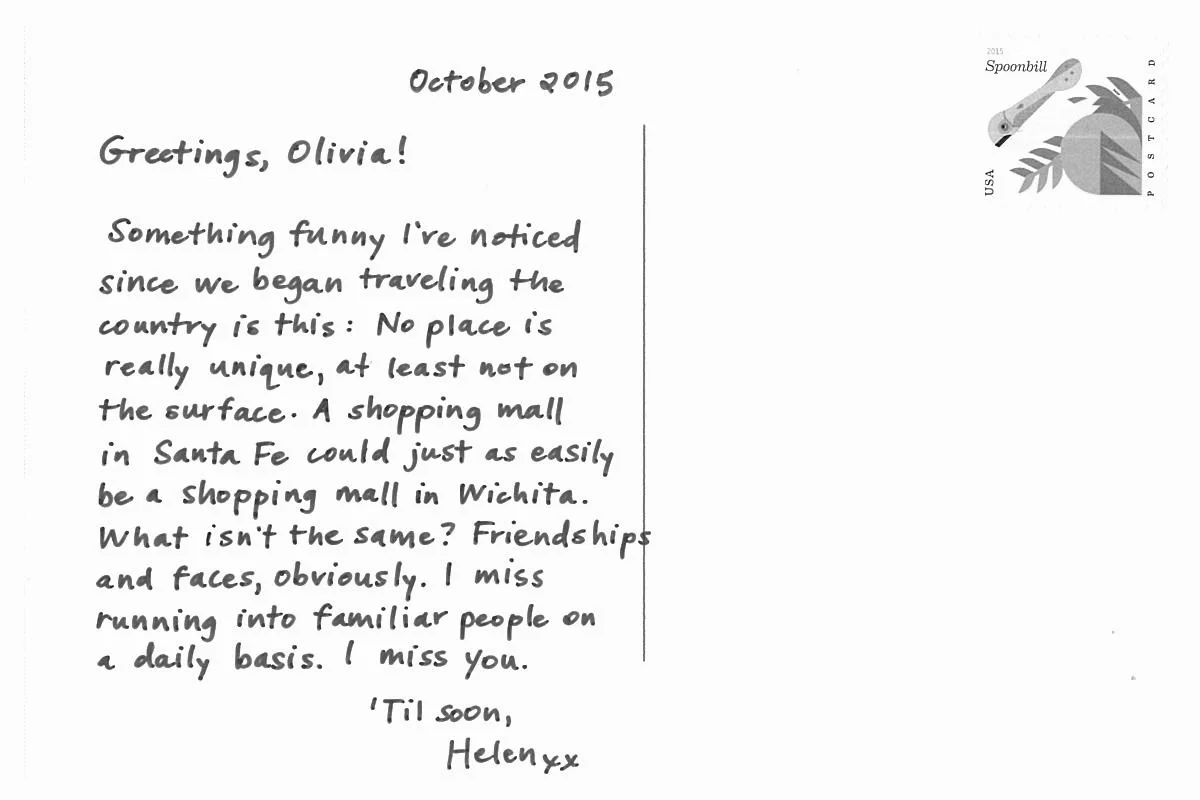 October 2015
2015
Spoonbill
USA
POSTCARD
Greetings, Olivia!
Something funny I've noticed
since we began traveling the
country is this: No place is
really unique, at least not on
the surface. A shopping mall
in Santa Fe could just as easily
be a shopping mall in Wichita.
What isn't the same? Friendships
and faces, obviously. I miss
running into familiar people on
a daily basis. I miss you.
'Til soon,
Helen xx